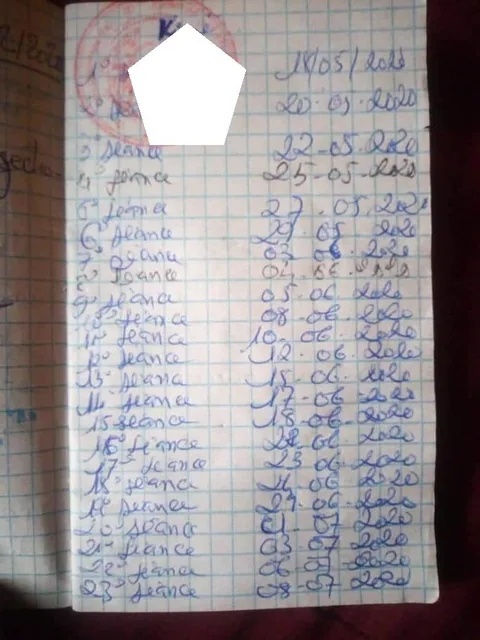 1° 18/05/2020
2° 20-05-2020
3° seance 22-05-2020
4° seance 25-05-2020
5° seance 27.05.2020
6° seance 29-05 2020
7° seance 03-06-2020
8° seance 04-06
9° seance 05-06 2020
10° seance 08-06-2020
11° seance 10-06-2020
12° seance 12.06.2020
13° seance 15-06-2020
14° seance 17-06-2020
15 seance 18-06-2020
16° seance 06 2020
17° seance 23 06-2020
18° seance 06 2020
19° seance 06-2020
20° seance 01-07 2020
21° seance 03-07-2020
22° seance 06-07-2020
23° seance 08-07 2020